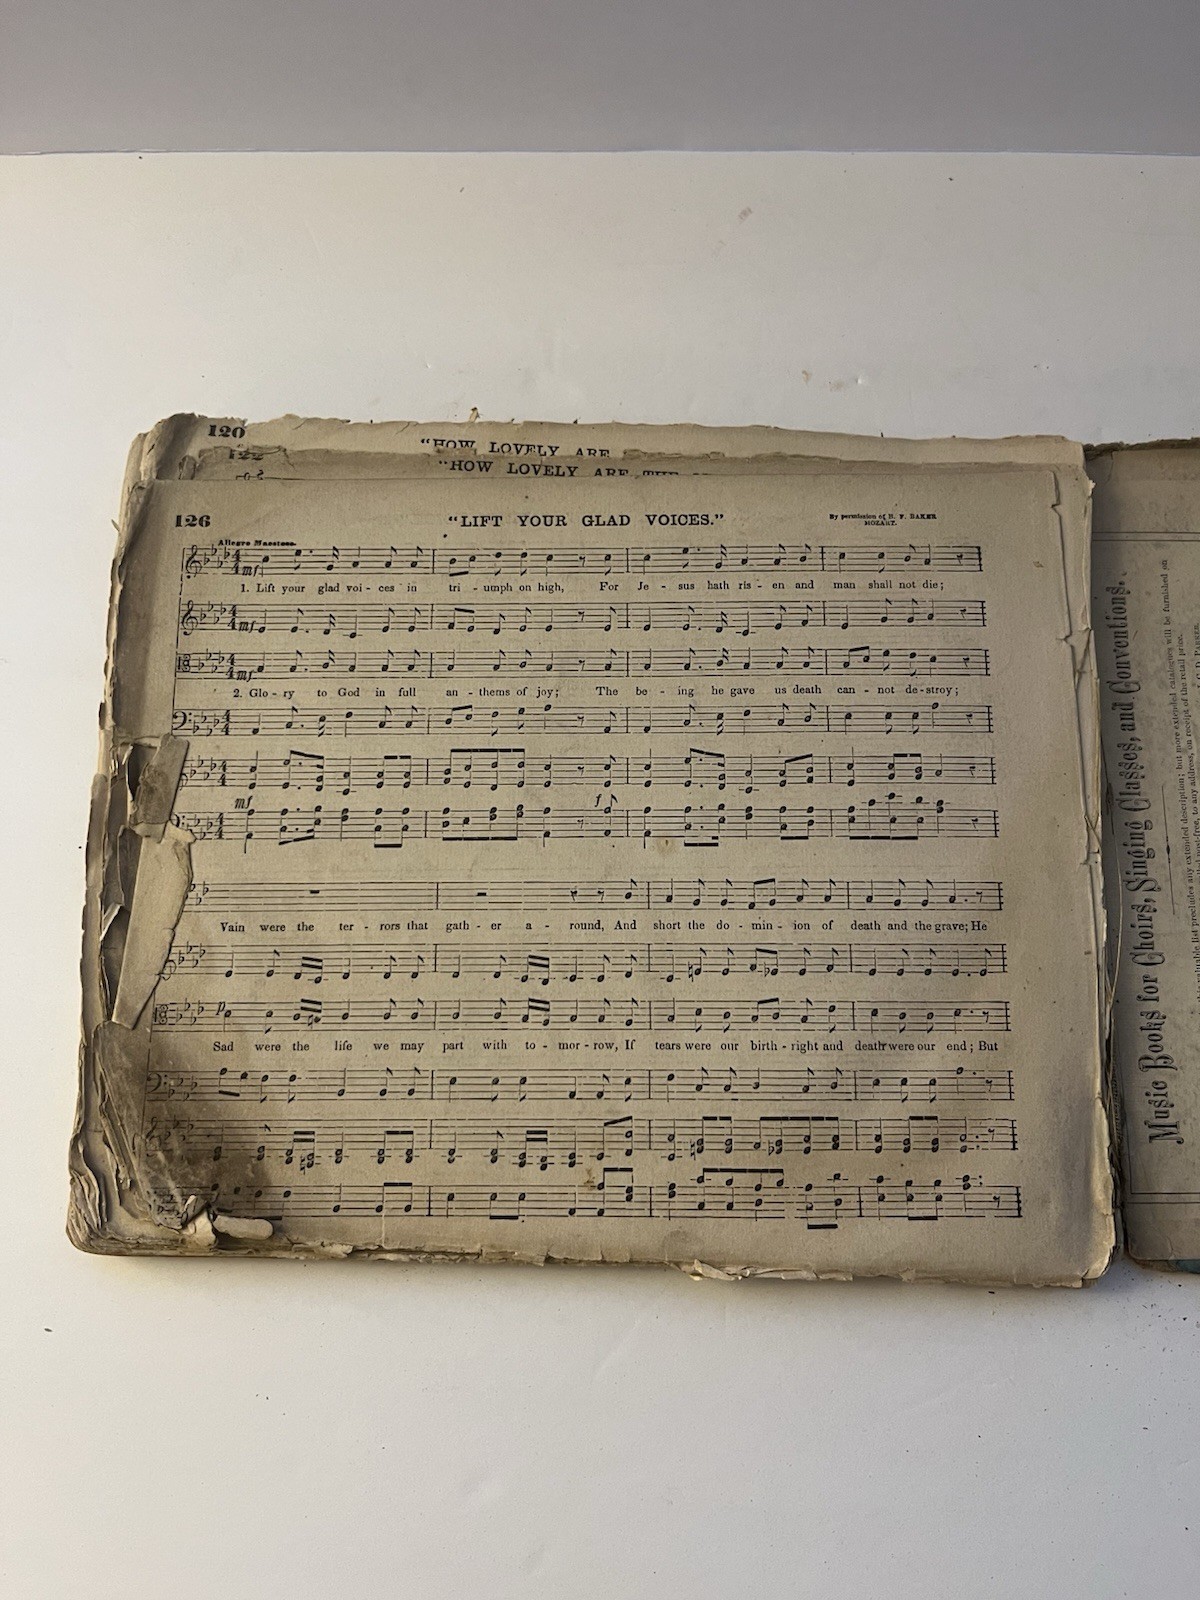 120
"HOW LOVELY ARE
122
"HOW LOVELY ARE THE
126
"LIFT YOUR GLAD VOICES."
By permission of B. F. BAKER
MOZART.
Allegro Maestoso.
mf
1. Lift your glad voi - ces in tri - umph on high, For Je - sus hath ris - en and man shall not die;
mf
mf
2. Glo - ry to God in full an - thems of joy; The be - ing he gave us death can - not de - stroy;
mf
f
Vain were the ter - rors that gath - er a - round, And short the do - min - ion of death and the grave; He
p
Sad were the life we may part with to - mor - row, If tears were our birth - right and death were our end; But
Music Books for Choirs, Singing Classes, and Conventions.
list precludes any extended description; but more extended catalogues will be furnished on
to any address, on receipt of the retail price.